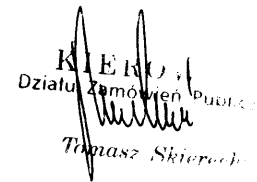 KIERO
Działu Zamówień Public
Tomasz Skierech